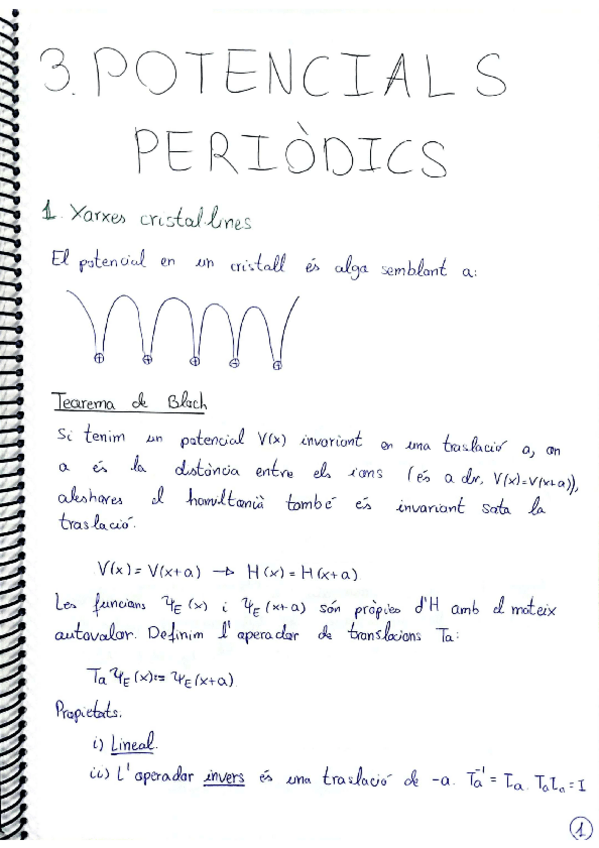 3. POTENCIALS
PERIÒDICS
1. Xarxes cristal·lines
El potencial en un cristall és alga semblant a:
+ + + + +
Teorema de Bloch
Si tenim un potencial V(x) invariant en una traslació a, on
a és la distància entre els ions (és a dir, V(x)=V(x+a)),
aleshores el hamiltonià també és invariant sota la
traslació.
V(x) = V(x+a) → H(x) = H(x+a)
Les funcions Ψ_E(x) i Ψ_E(x+a) són pròpies d'H amb el mateix
autovalor. Definim l'operador de translacions Ta:
Ta Ψ_E(x) := Ψ_E(x+a)
Propietats.
i) Lineal.
ii) L'operador invers és una traslació de -a. Ta⁻¹ = T₋a. TaT₋a = I
1